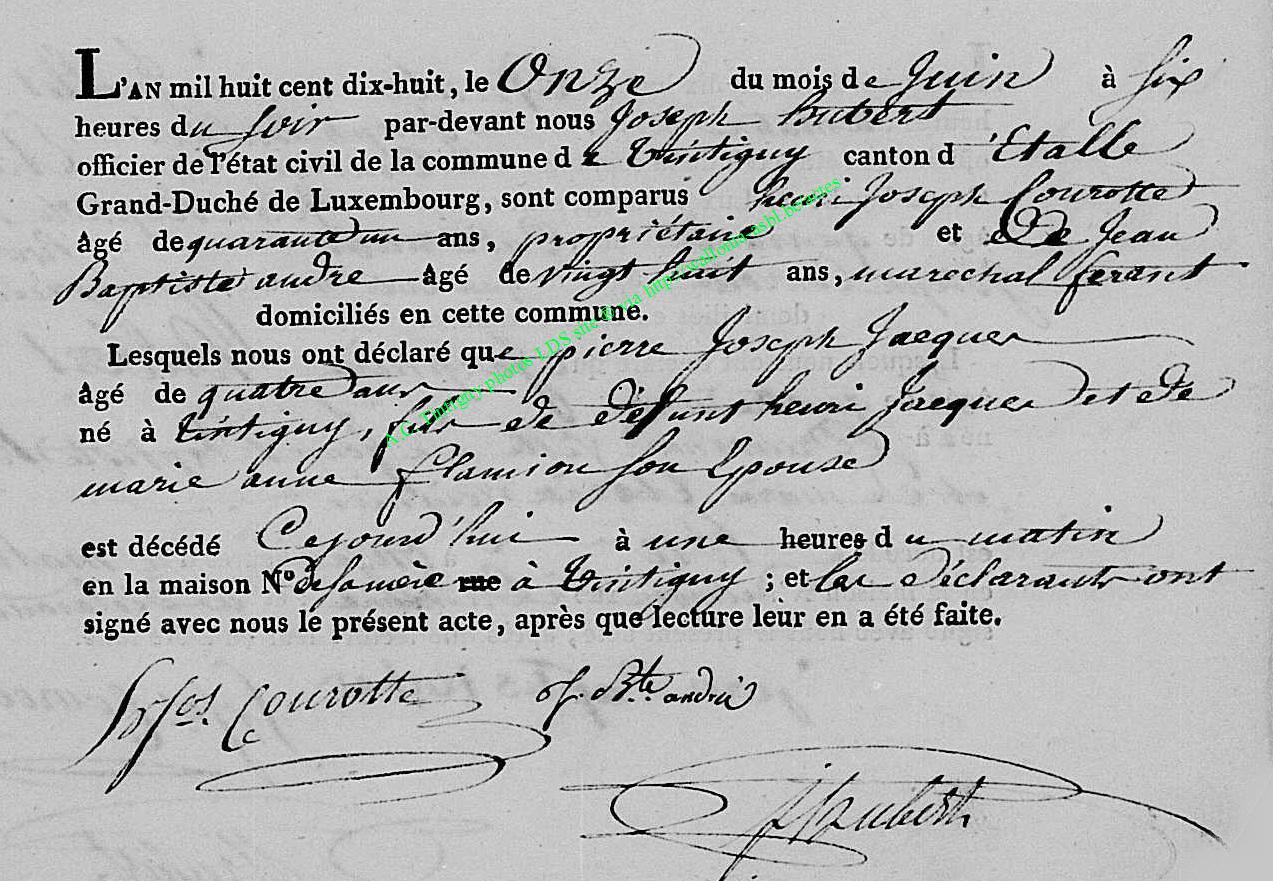 L'AN mil huit cent dix-huit, le Onze du mois de Juin à six
heures du soir par-devant nous Joseph hubert
officier de l'état civil de la commune de tintigny canton d'Etalle
Grand-Duché de Luxembourg, sont comparus henri Joseph Courotte
âgé de quarante un ans, propriétaire et De Jean
Baptiste andre âgé de vingt huit ans, marechal ferant
domiciliés en cette commune.
Lesquels nous ont déclaré que pierre Joseph Jacques
âgé de quatre ans
né à tintigny, fils de défunt henri Jacques et de
marie anne flamion son Epouse
est décédé Cejourd'hui à une heures du matin
en la maison Nº de sa mère rue à tintigny ; et les déclarants ont
signé avec nous le présent acte, après que lecture leur en a été faite.
Courotte J. Bte andré
J hubert
A.G. Tintigny photos LDS site via http://wallonica